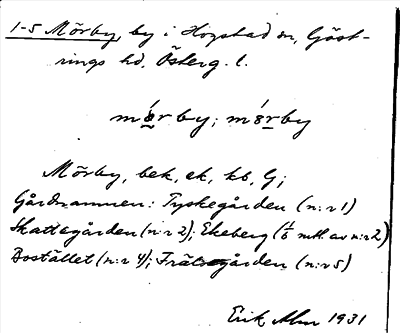 1-5 Mörby, by i Hogstad sn, Göst-
rings hd, Österg. l.
mǿrby; mörby
Mörby, bek, ek, kb, G;
Gårdnamnen: Tyskegården (n:r 1)
Skattegården (n:r 2); Ekeberg (1/6 mtl. av n:r 2)
Bostället (n:r 4); Frälsegården (n:r 5)
Erik Alm 1931